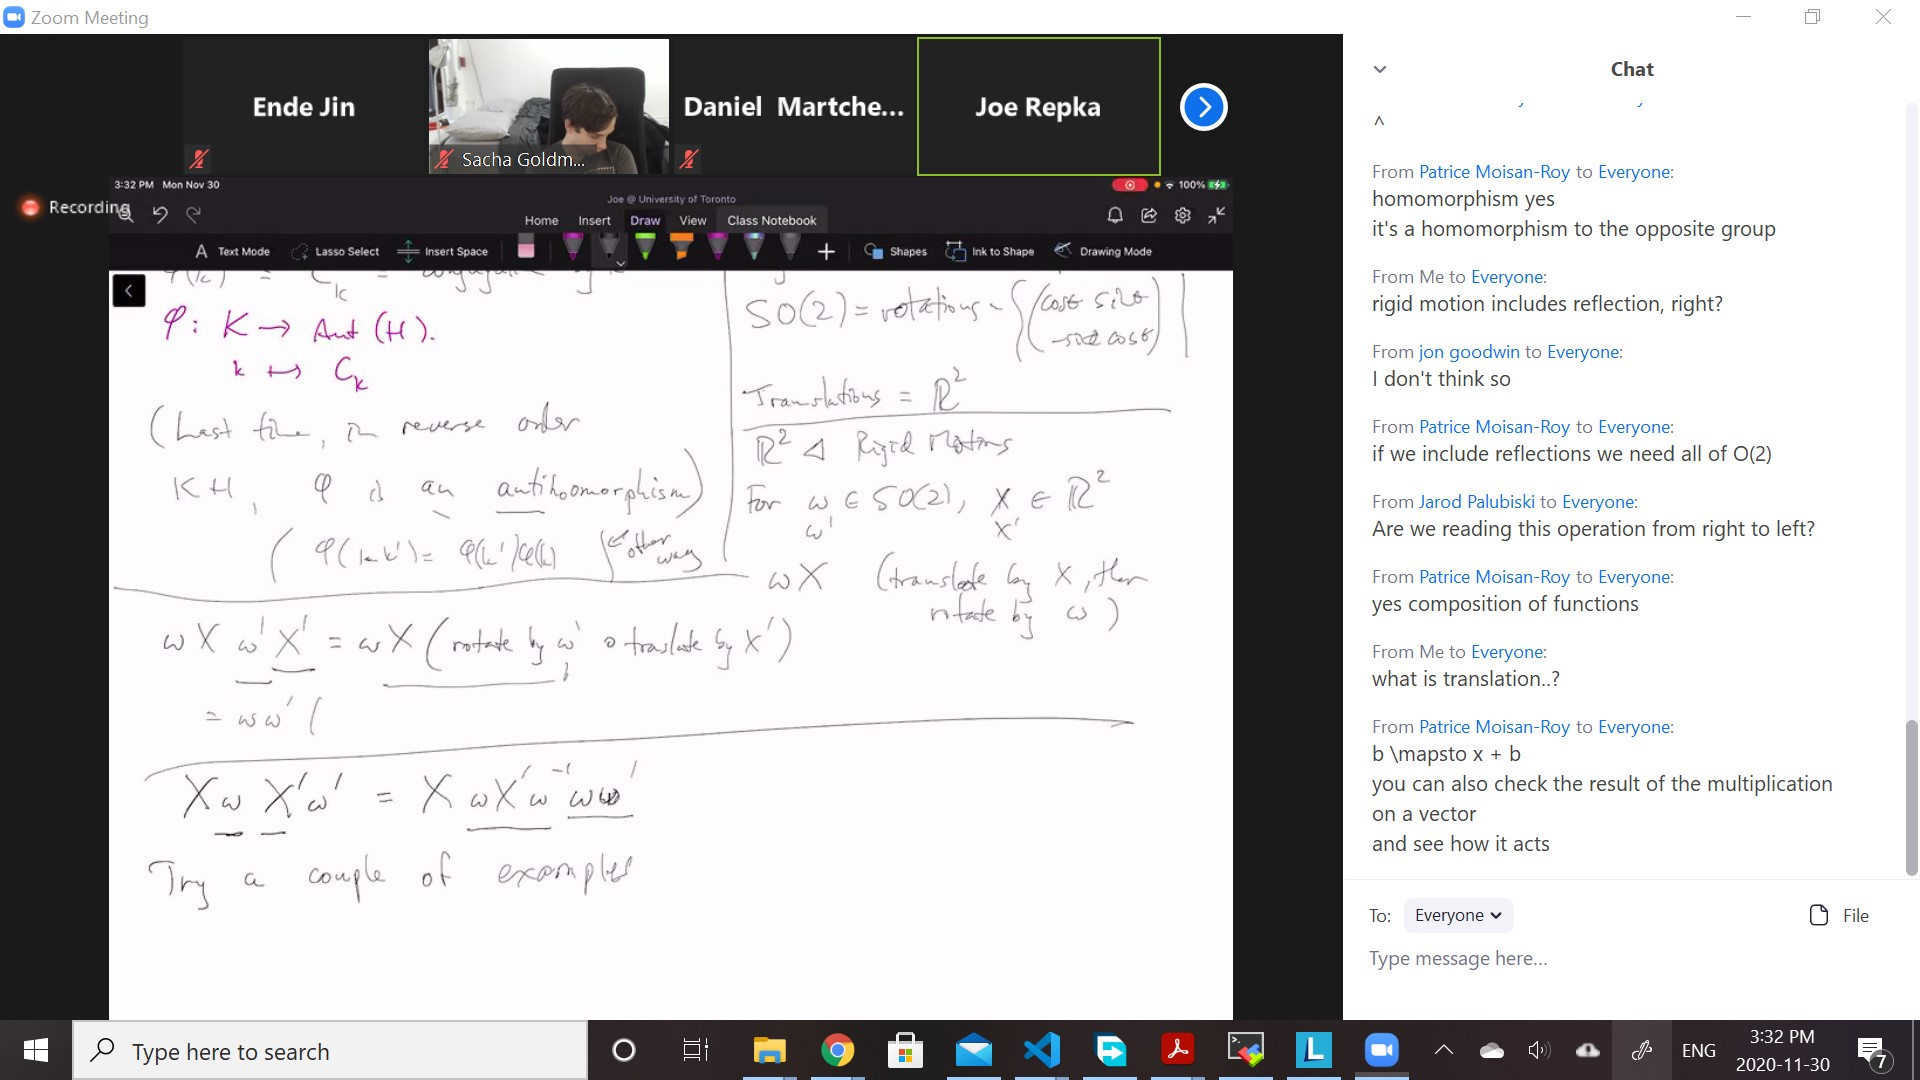 Zoom Meeting
Ende Jin
Sacha Goldm...
Daniel Martche...
Joe Repka
Recording
3:32 PM Mon Nov 30
100%
Joe @ University of Toronto
Home Insert Draw View Class Notebook
Text Mode Lasso Select Insert Space Shapes Ink to Shape Drawing Mode
φ: K → Aut (H).
k ↦ C_k
(Last time, in reverse order
KH, φ is an antihoomorphism)
(φ(kk') = φ(k')φ(k) ← other way
SO(2) = rotations = {(cosθ sinθ
-sinθ cosθ)
Translations = ℝ²
ℝ² ⊲ Rigid Motions
For ω ∈ SO(2), X ∈ ℝ²
ω' X'
ωX (translate by X, then
rotate by ω)
ωX ω'X' = ωX (rotate by ω' ∘ traslate by X')
= ωω' (
Xω X'ω' = X ωX'ω⁻¹ ωω'
Try a couple of examples
Chat
^
From Patrice Moisan-Roy to Everyone:
homomorphism yes
it's a homomorphism to the opposite group
From Me to Everyone:
rigid motion includes reflection, right?
From jon goodwin to Everyone:
I don't think so
From Patrice Moisan-Roy to Everyone:
if we include reflections we need all of O(2)
From Jarod Palubiski to Everyone:
Are we reading this operation from right to left?
From Patrice Moisan-Roy to Everyone:
yes composition of functions
From Me to Everyone:
what is translation..?
From Patrice Moisan-Roy to Everyone:
b \mapsto x + b
you can also check the result of the multiplication
on a vector
and see how it acts
To: Everyone File
Type message here...
Type here to search
L
ENG
3:32 PM
2020-11-30
7